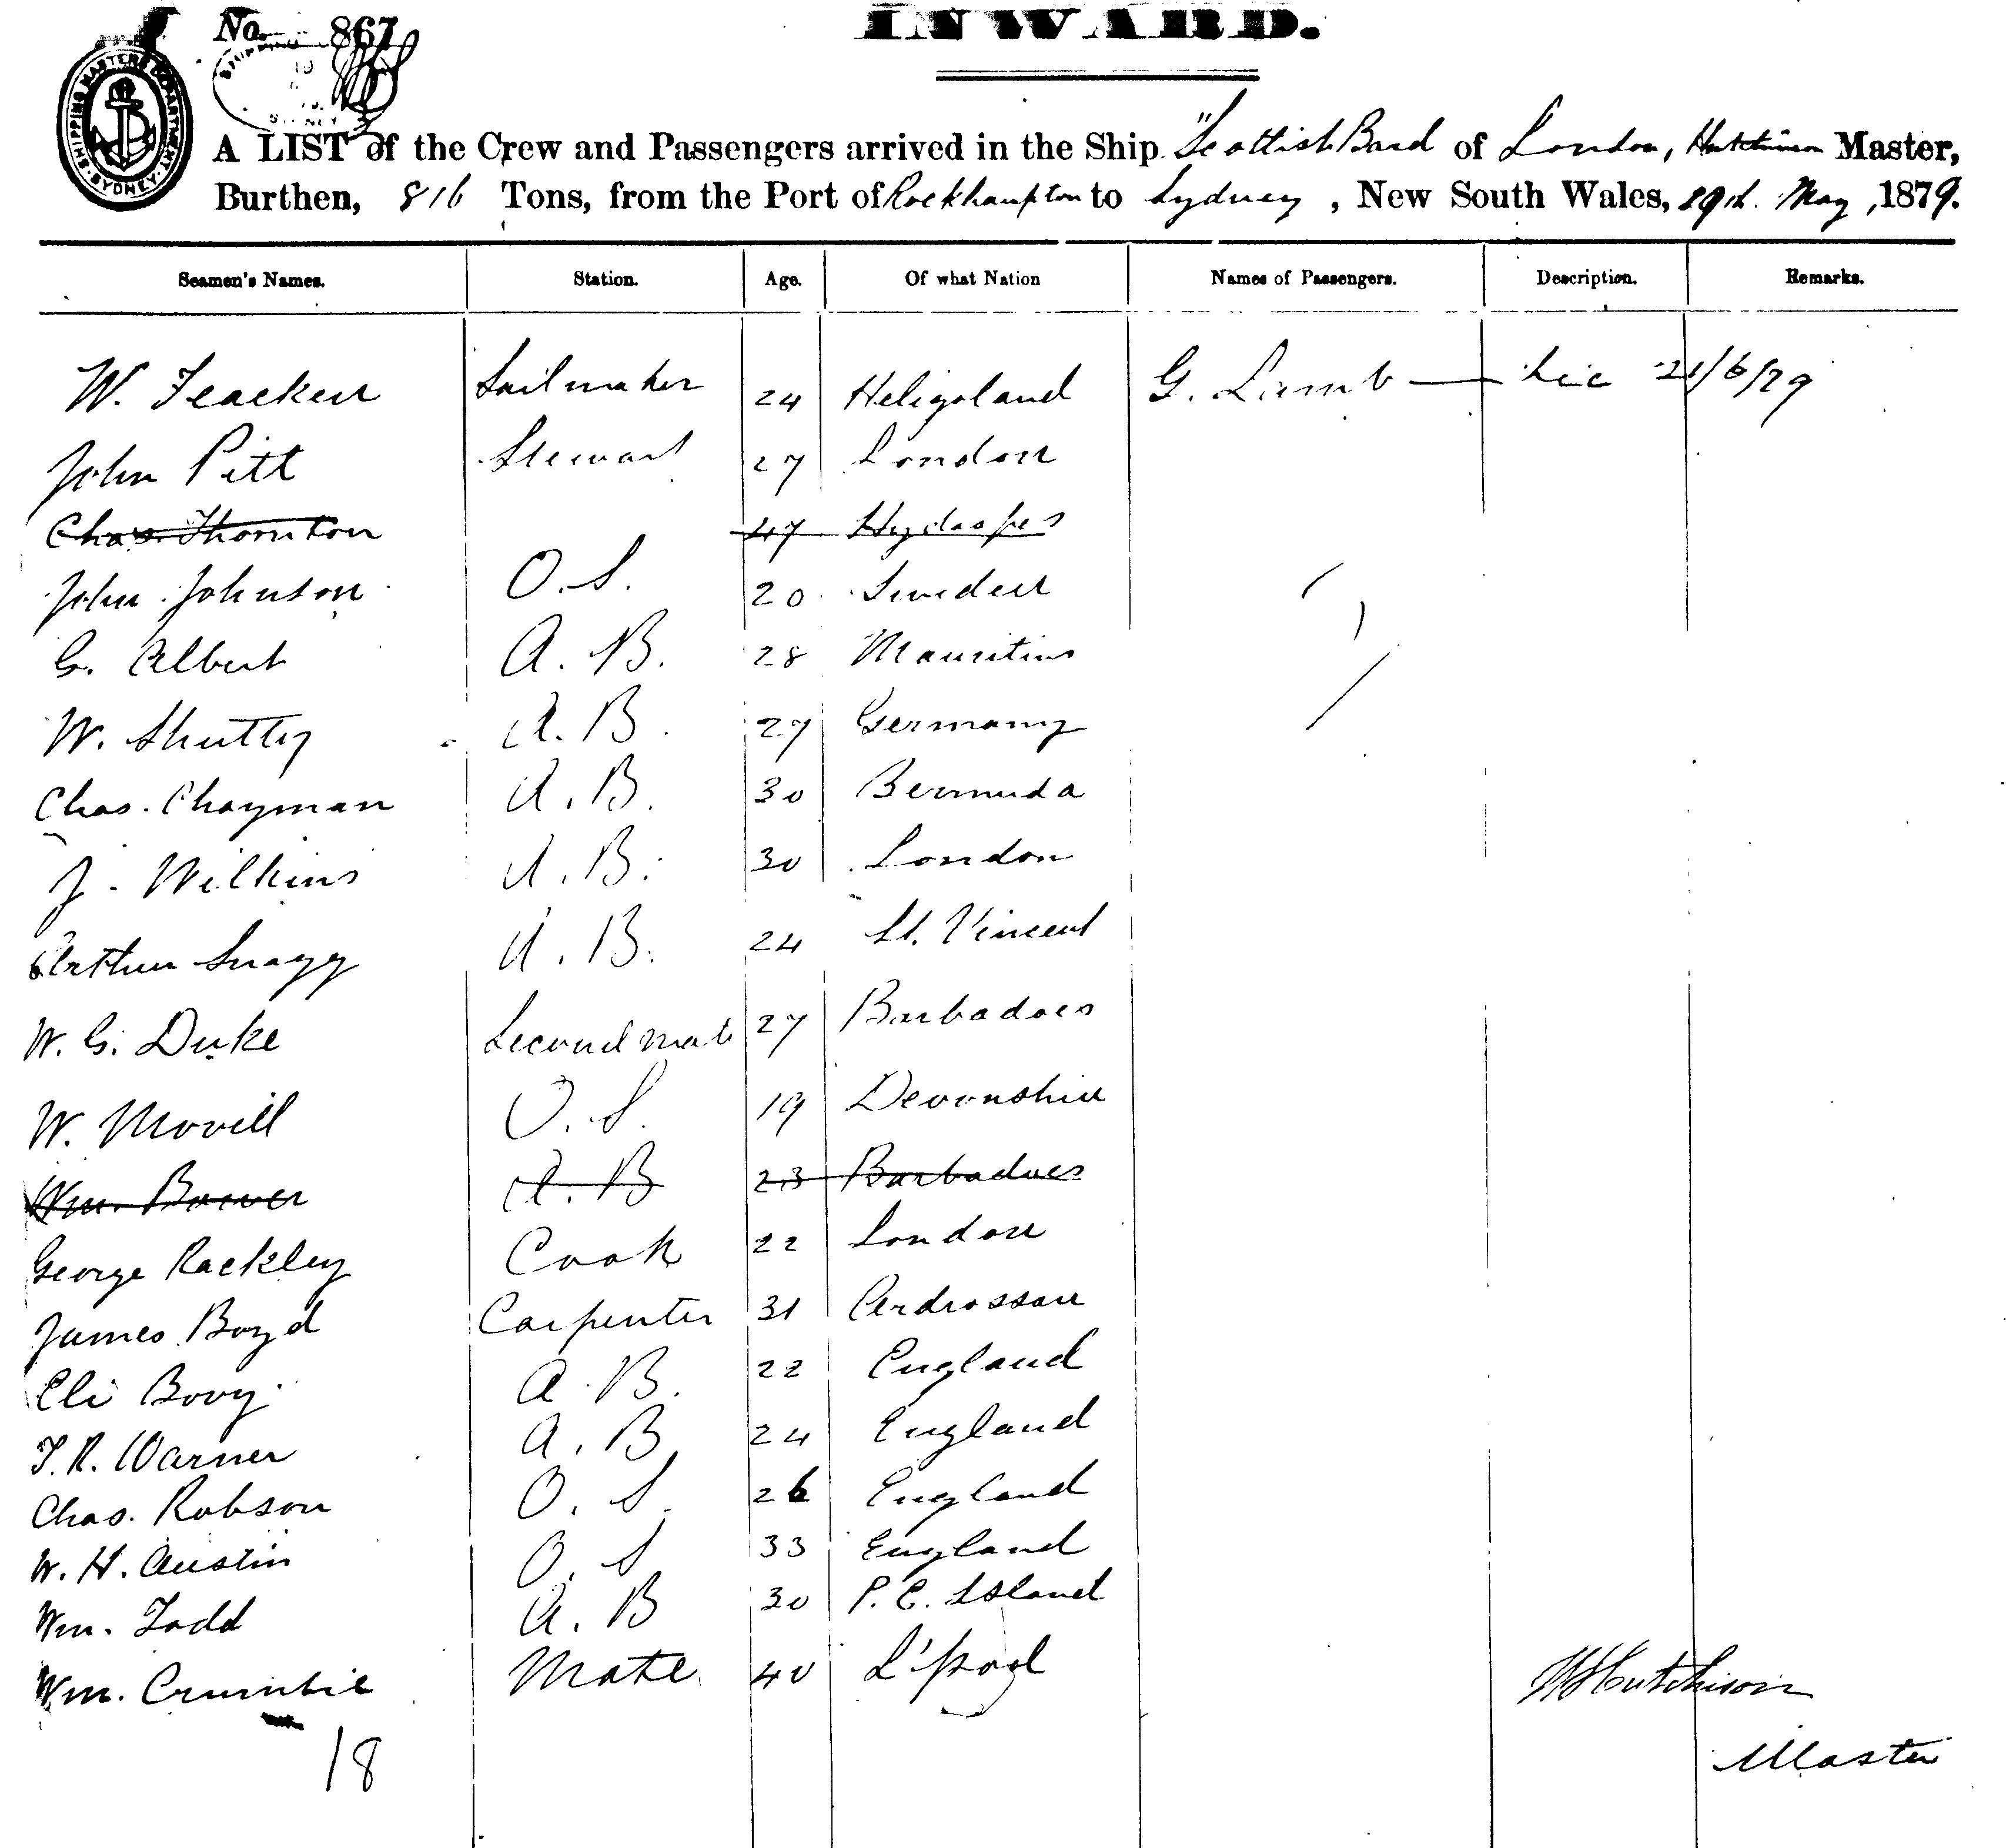 No. 867
INWARD.
SHIPPING MASTERS DEPARTMENT SYDNEY
A LIST of the Crew and Passengers arrived in the Ship "Scottish Bard of London, Hutchinson Master,
Burthen, 816 Tons, from the Port of Rockhampton to Sydney, New South Wales, 29th. May, 1879.
Seamen's Names. Station. Age. Of what Nation Names of Passengers. Description. Remarks.
W. Feacken Sailmaker 24 Heligoland G. Lamb — 21/6/79
John Pitt Stewart 27 London
Chas. Thornton 47 Hydaspes
John Johnson O.S. 20 Sweden
G. Albert A.B. 28 Mauritius
W. Shutty A.B. 27 Germany
Chas. Chapman A.B. 30 Bermuda
J. Wilkins A.B. 30 London
Arthur Snagg A.B. 24 St. Vincent
W. G. Duke Second mate 27 Barbadoes
W. Morell O.S. 19 Devonshire
Wm. Bower A.B 23 Barbadoes
George Rackley Cook 22 London
James Boyd Carpenter 31 Ardrossan
Eli Bovy A.B. 22 England
T. R. Warner A.B 24 England
Chas. Robson O.S. 26 England
W. H. Austin O.S 33 England
Wm. Todd A.B 30 P. E. Island
Wm. Crumbie Mate. 40 L'pool
W Hutchison
18
Master